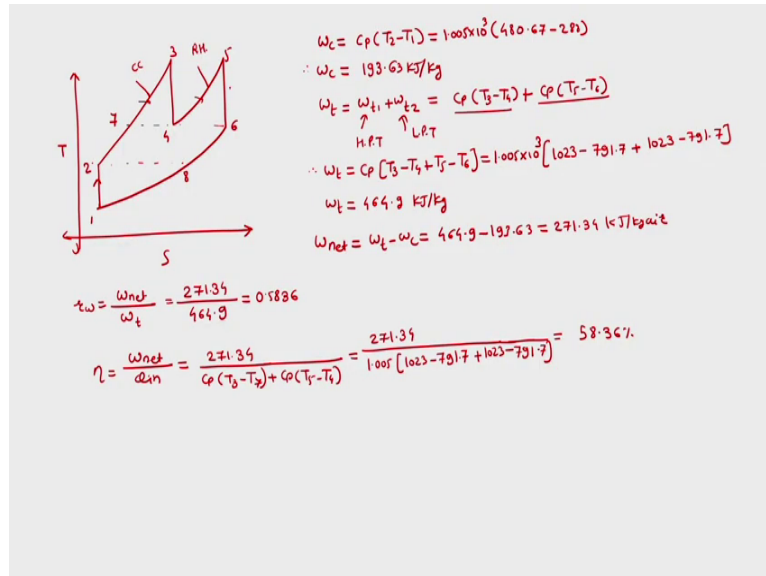 ωc = Cp(T2-T1) = 1.005×10³(480.67-288)
∴ ωc = 193.63 KJ/kg
ωt = ωt1 + ωt2 = Cp(T3-T4) + Cp(T5-T6)
H.P.T L.P.T
∴ ωt = Cp[T3-T4+T5-T6] = 1.005×10³[1023-791.7+1023-791.7]
ωt = 464.9 KJ/kg
ωnet = ωt-ωc = 464.9-193.63 = 271.34 KJ/kgair
3 5
CC RH
7 4 6
T 2 8
1
S
rω = ωnet/ωt = 271.34/464.9 = 0.5836
η = ωnet/Qin = 271.34/Cp(T3-T7)+Cp(T5-T4) = 271.34/1.005[1023-791.7+1023-791.7] = 58.36%